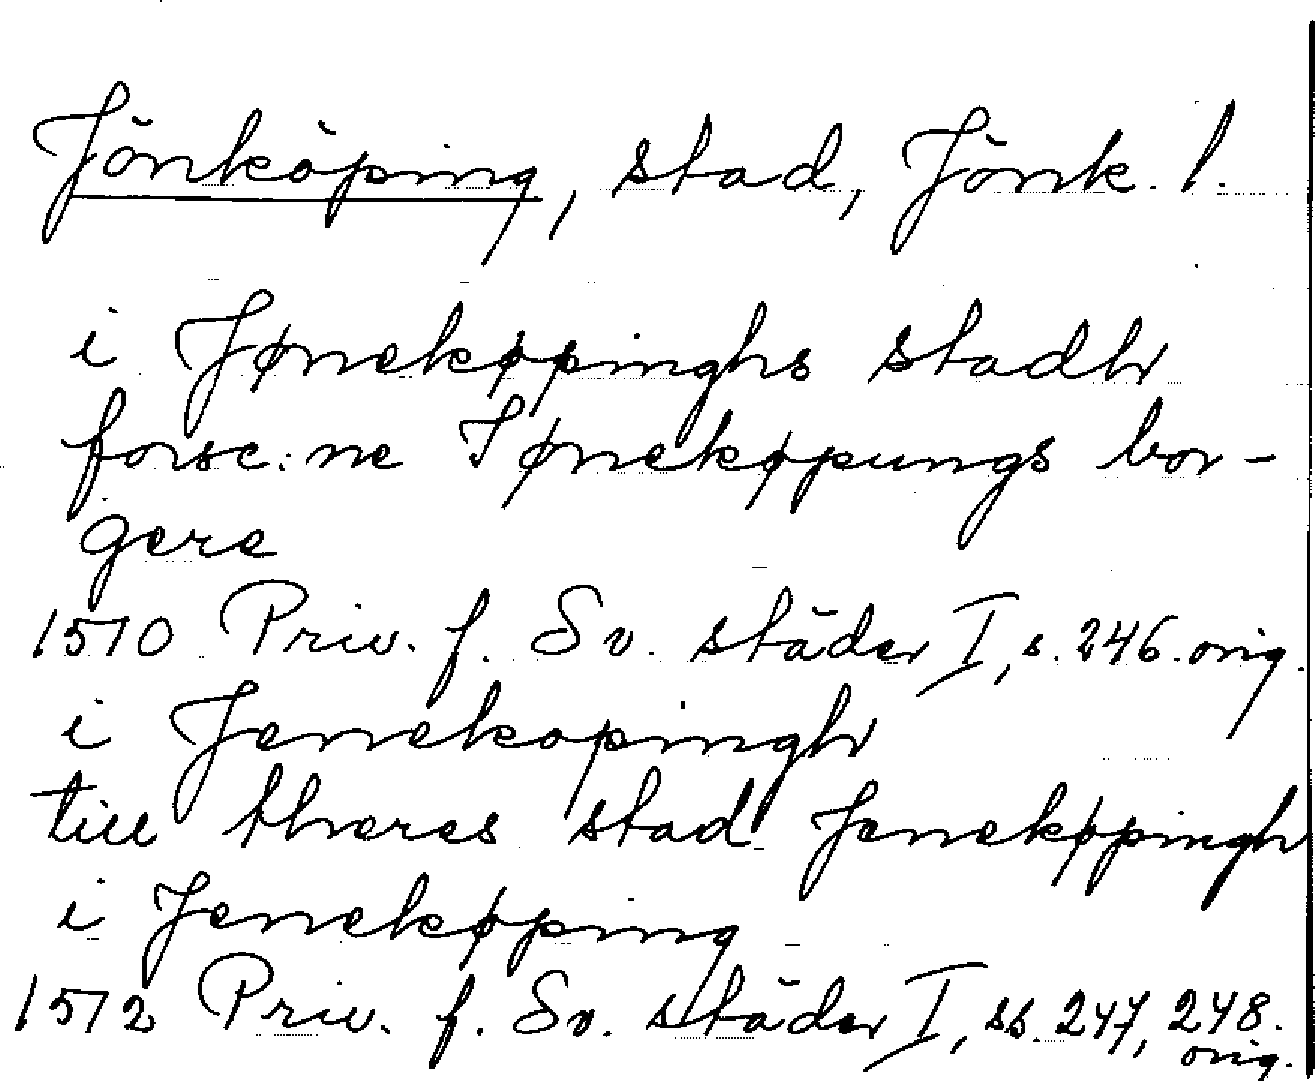 Jönköping, stad, Jönk. l.
i Jønekøpinghs stadh
forsc:ne Jønekøpungs bor-
gere
1570 Priv. f. Sv. städer I, s. 246. orig.
i Jenekopingh
till theres stad Jenekøpingh
i Jenekøping
1572 Priv. f. Sv. städer I, ss. 247, 248.
orig.